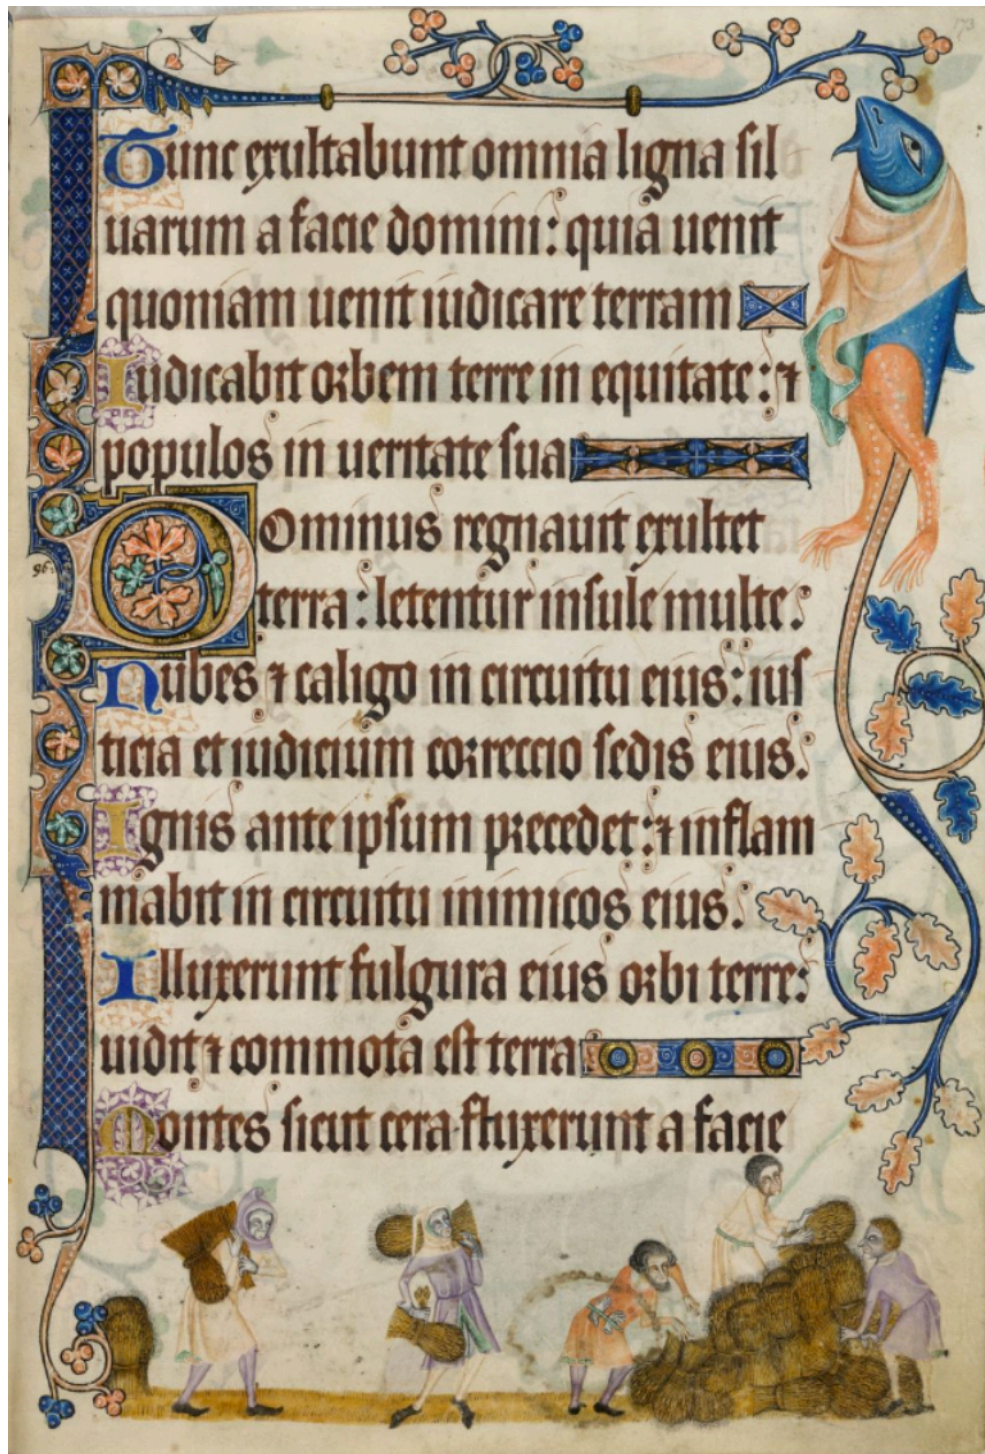 173
Tunc exultabunt omnia ligna sil
uarum a facie domini: quia uenit
quoniam uenit iudicare terram
Iudicabit orbem terre in equitate: ⁊
populos in ueritate sua
Dominus regnauit exultet
96.
terra: letentur insule multe:
Nubes ⁊ caligo in circuitu eius: ius
ticia et iudicium correccio sedis eius.
Ignis ante ipsum precedet: ⁊ inflam
mabit in circuitu inimicos eius.
Illuxerunt fulgura eius orbi terre:
uidit ⁊ commota est terra
Montes sicut cera fluxerunt a facie